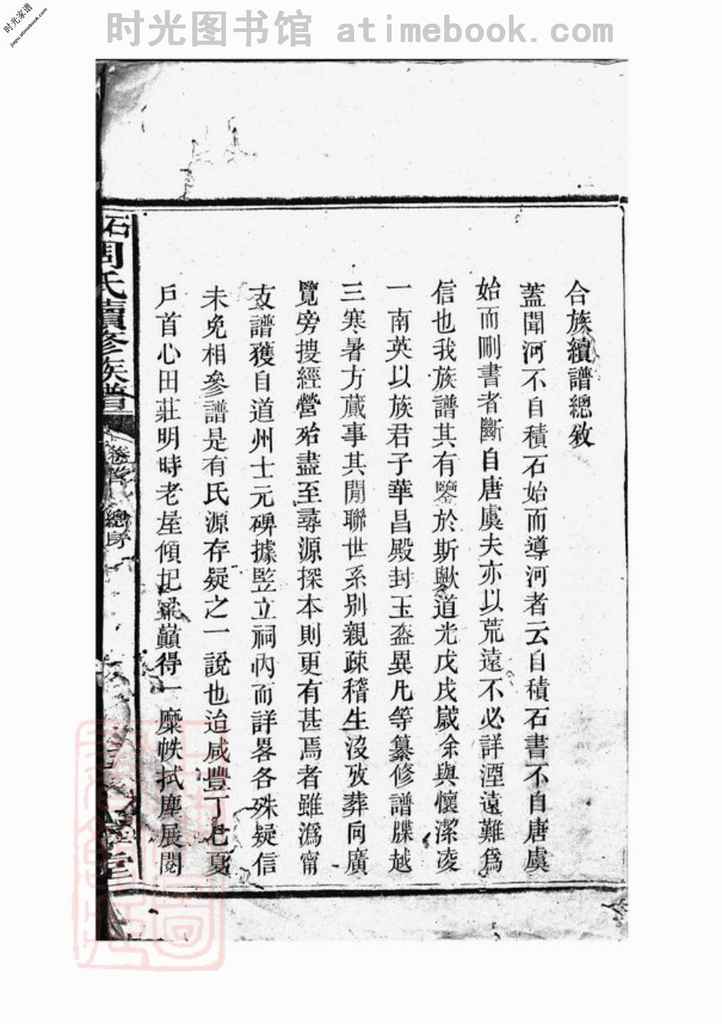 时光图书馆 atimebook.com
时光家谱
jiapu.atimebook.com
合族續譜總敘
蓋聞河不自積石始而導河者云自積石書不自唐虞
始而刪書者斷自唐虞夫亦以荒遠不必詳湮遠難為
信也我族譜其有鑒於斯歟道光戊戌歲余與懷潔凌
一南英以族君子華昌殿封玉盃異凡等纂修譜牒越
三寒暑方蕆事其間聯世系別親疎稽生沒攷葬同廣
覽旁搜經營殆盡至尋源探本則更有甚焉者雖溈甯
支譜獲自道州士元碑據竪立祠內而詳畧各殊疑信
未免相參譜是有氏源存疑之一說也迨咸豐丁巳夏
戶首心田莊明時老屋傾圮梁巔得一糜帙拭塵展閱
石周氏續修族譜
卷首 總序
堂